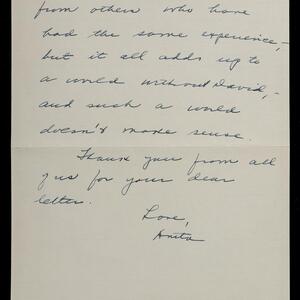 from others who have
had the same experience, –
but it all adds up to
a world without David, –
and such a world
doesn't make sense.
Thank you from all
of us for your dear
letter.
Love,
Anita